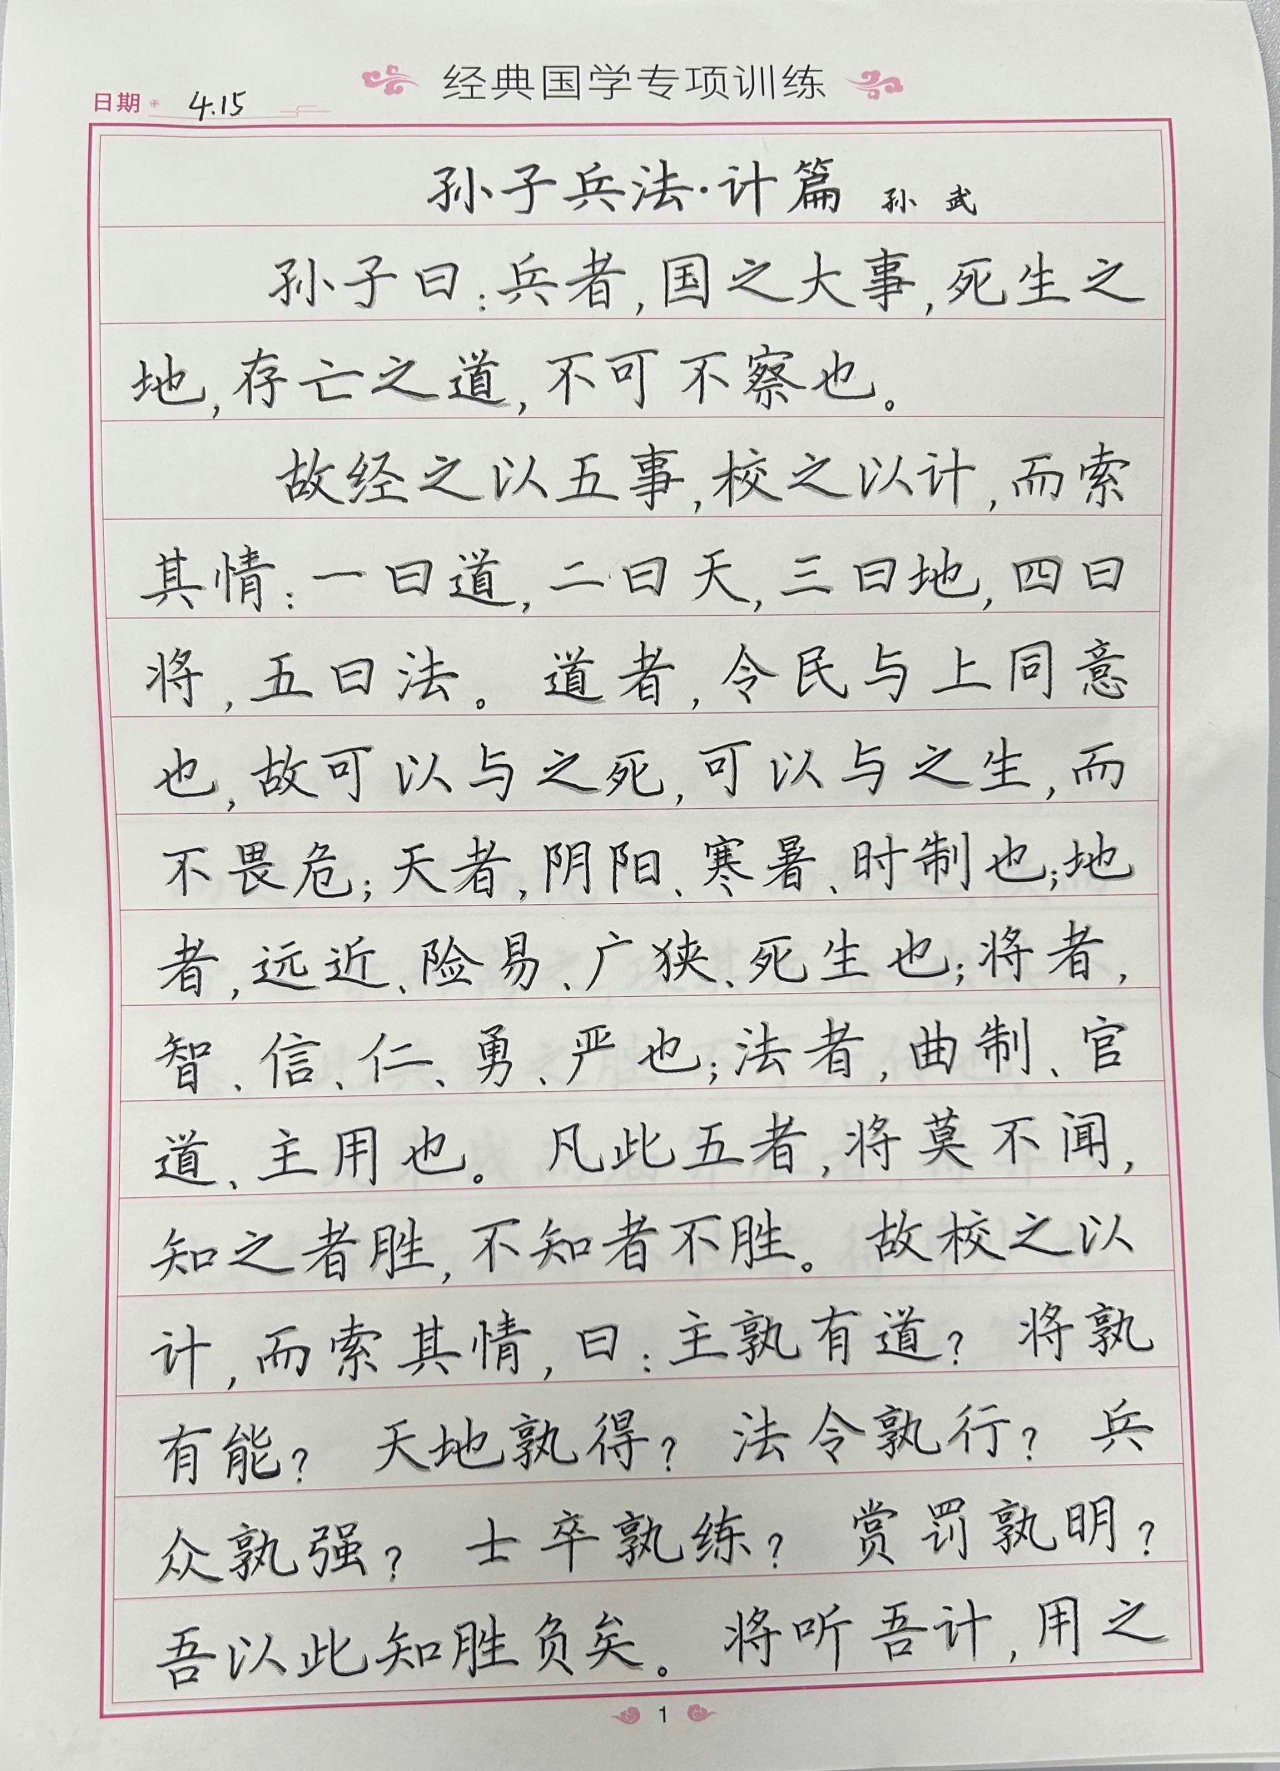 经典国学专项训练
日期 4.15
孙子兵法·计篇 孙武
孙子曰:兵者,国之大事,死生之
地,存亡之道,不可不察也。
故经之以五事,校之以计,而索
其情:一曰道,二曰天,三曰地,四曰
将,五曰法。道者,令民与上同意
也,故可以与之死,可以与之生,而
不畏危;天者,阴阳、寒暑、时制也;地
者,远近、险易、广狭、死生也;将者,
智、信、仁、勇、严也;法者,曲制、官
道、主用也。凡此五者,将莫不闻,
知之者胜,不知者不胜。故校之以
计,而索其情,曰:主孰有道?将孰
有能?天地孰得?法令孰行?兵
众孰强?士卒孰练?赏罚孰明?
吾以此知胜负矣。将听吾计,用之
1